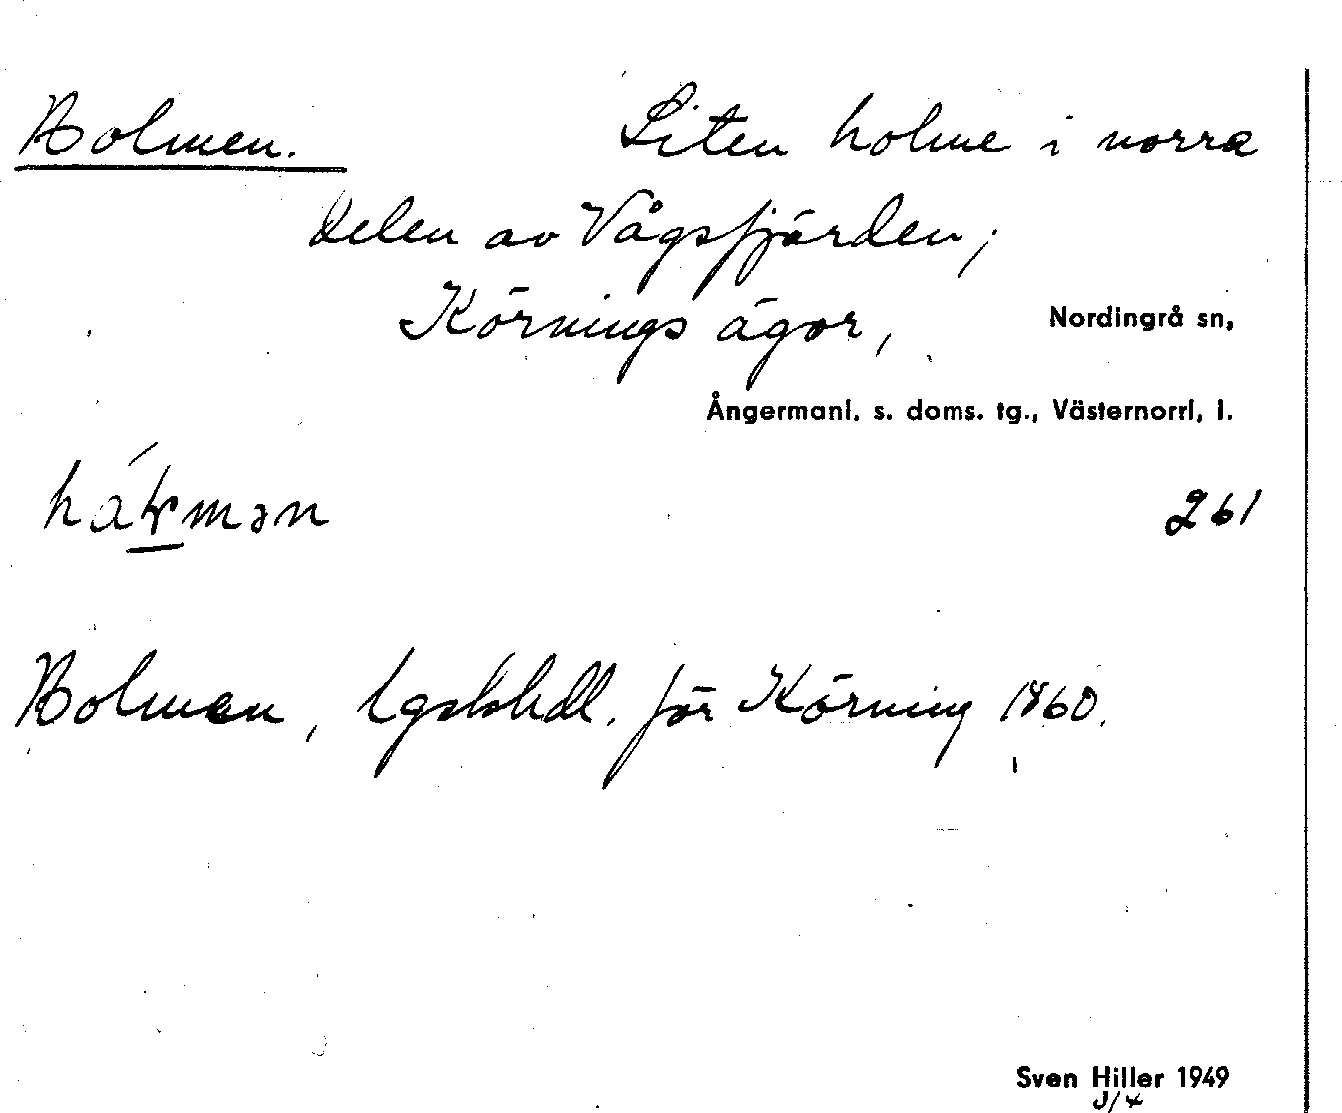 Holmen. Liten holme i norra
delen av Vågsfjärden;
Körnings ägor, Nordingrå sn,
Ångermanl. s. doms. tg., Västernorrl. l.
261
Holmen, lgskhdl. för Körning 1860.
Sven Hiller 1949